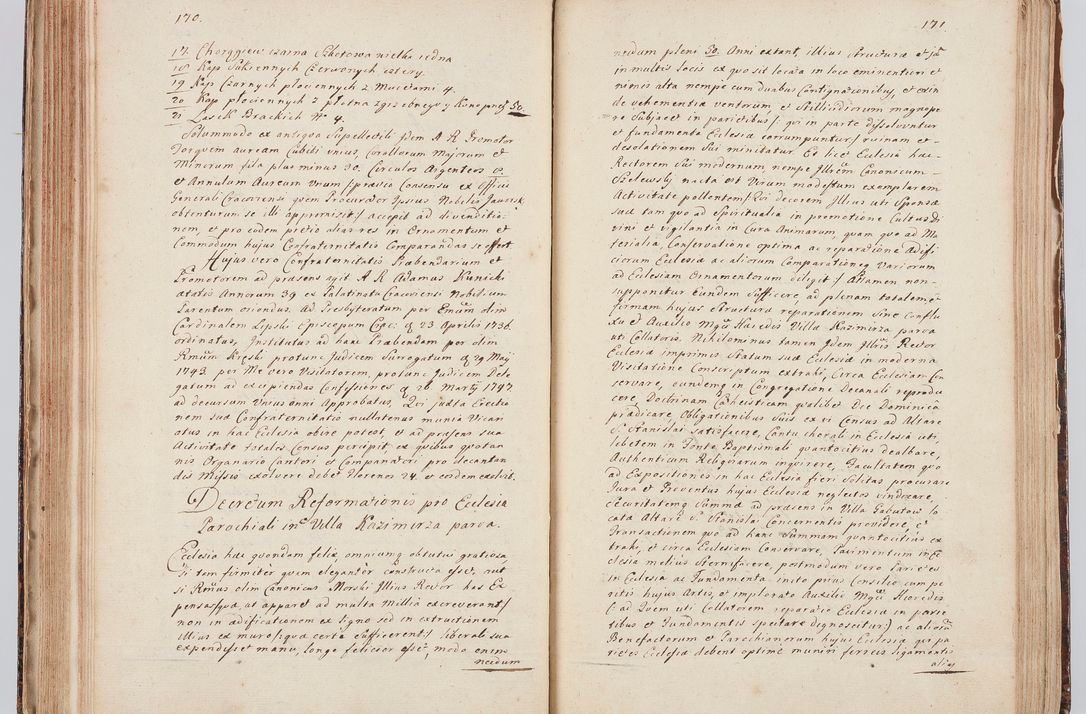 170.
17. Chorągiew czarna Szkotowa wielka iedna
18 Kap Sukiennych Czerwonych cztery.
19 Kap Czarnych płociennych z Mucetami 4.
20 Kap płociennych z płotna zgrzebnego y Konopneg 50.
21 Lasek Brackich Nº 4.
Solummodo ex antiqua Supellectili idem A. R. Promotor
Torquem auream Cubiti unius, Corollorum Majorum et
Minorum fila plus minus 30. Circulos Argenteos 8.
et Annulum Aureum Unum /: prævio Consensu ex Officio
Generali Cracoviensi quem Procurator Ipsius Nobilis Jaworsk
obtenturum se illi appromisit :/ accepit ad divenditio-
nem, et pro eodem pretio alias res in Ornamentum et
Commodum hujus Confraternitatis Comparandas se offert.
Hujus vero Confraternitatis Præbendarium et
Promotorem ad præsens agit A. R. Adamus Kunicki
ætatis Annorum 39 ex Palatinatu Cracoviensi Nobilium
Parentum oriundus. Ad Presbyteratum per Emum olim
Cardinalem Lipski Episcopum Crac: d. 23 Aprilis 1736
ordinatus, Institutus ad hanc Præbendam per olim
Rmum Kręski protunc Judicem Surrogatum d. 29 Maij
1743. per Me vero Visitatorem, protunc Judicem Dele-
gatum ad excipiendas Confessiones d. 20 Martij 1747
ad decursum Unius anni Approbatus, Qui juxta Erectio-
nem suæ Confraternitatis nullatenus munia Vicari-
atus in hac Ecclesia obire potest, et ad præsens sua
Activitate totales Census percipit, ex quibus quotan-
nis Organario Cantori et Campanatori pro decantan-
dis Missis exolvere debet florenos 24. et eosdem exolvit.
Decretum Reformationis pro Ecclesia
Parochiali in Villa Kazimirza parva.
Ecclesia hæc quondam felix, omnium obtutui gratiosa
si tam firmiter quam eleganter constructa esset, aut
si Rmus olim Canonicus Morski Illius Rector has Ex-
pensas /: quæ, ut apparet ad multa Millia excreverant :/
non in ædificationem ex ligno sed in extructionem
Illius ex muro /: quæ certe sufficerent :/ liberali sua
expendisset manu, longe felicior esset, modo enim
necdum
171.
necdum pleni 50. Anni extant, illius structura et jam
in multis locis ex quo sit locata in loco eminentiori et
nimis alta nempe cum duabus Contignationibus, et exin-
de vehementia ventorum, et Stillicidiorum magnope-
re Subjacet in parietibus /: qui in parte dissolvuntur
et fundamenta Ecclesiæ corrumpuntur :/ ruinam et
desolationem sui minitatur. Et licet Ecclesia hæc
Rectorem sui modernum, nempe Illrem Canonicum
Szelewski nacta est Virum modestum exemplarem
Activitate pollentem /: Qui decorem Illius uti Sponsæ
suæ tam quo ad Spiritualia in promotione Cultus Di-
vini et vigilantia in Cura Animarum, quam quo ad Ma-
terialia, Conservatione optima ac reparatione Ædifi-
ciorum Ecclesiæ ac aliorum Comparatione Variorum
ad Ecclesiam Ornamentorum diligit :/ Attamen non
supponitur Eundem Sufficere, ad plenam totalemq
firmam hujus Structuræ reparationem sine Consil-
io et Auxilio Mgci Hæredis Villæ Kazimirza parva
uti Collatoris. Nihilominus tamen Idem Illris Rector
Ecclesiæ imprimis Statum suæ Ecclesiæ in moderna
Visitatione Conscriptum extrahi, Circa Ecclesiam Con-
servare, eundemq in Congregatione Decanali reprodu-
cere, Doctrinam Catheisticam qualibet Die Dominica
prædicare, Obligationibus suis ex vi Census ad Altare
S. Stanislai satisfacere, Cantu chorali in Ecclesia uti,
lebetem in Fonte Baptismali quantocitius dealbare,
Authenticum Reliquiarum inquirere, Facultatem quo
ad Expositiones in hac Ecclesia fieri solitas procurare
Jura et Proventus hujus Ecclesiæ neglectos vindicare,
securitatemq Summæ ad præsens in Villa Gabutow lo-
catæ Altare S. Stanislai Concernentis providere, et
Transactionem quo ad hanc Summam quantocitius ex-
trahi, et circa Ecclesiam Conservare, Pavimentum in Ec-
clesia melius Sternifacere, postmodum vero Parietes
in Ecclesia ac Fundamenta inito prius Consilio cum pe-
ritis hujus Artis, et implorato Auxilio Mgci Hæredis
(: ad Quem uti Collatorem reparatio Ecclesiæ in parie-
tibus et Fundamentis spectare dignoscitur :) ac aliorum
Benefactorum et Parochianorum hujus Ecclesiæ, qui pa-
rietes Ecclesiæ debent optime muniri ferreis ligamentis
alijs